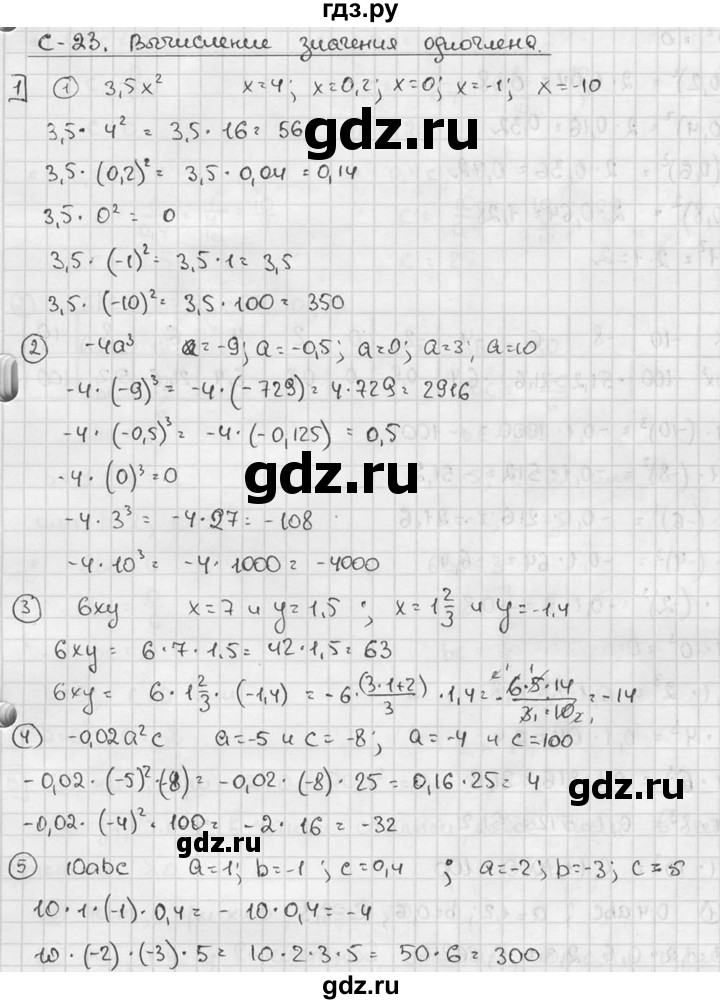 гдз.ру
С-23. Вычисление значения одночлена.
1 1 3,5x² x=4; x=0,2; x=0; x=-1; x=-10
3,5 · 4² = 3,5 · 16 = 56
gdz.ru
3,5 · (0,2)² = 3,5 · 0,04 = 0,14
3,5 · 0² = 0
3,5 · (-1)² = 3,5 · 1 = 3,5
3,5 · (-10)² = 3,5 · 100 = 350
2 -4a³ a = -9; a = -0,5; a=0; a=3; a=10
-4 · (-9)³ = -4 · (-729) = 4 · 729 = 2916
-4 · (-0,5)³ = -4 · (-0,125) = 0,5
gdz.ru
-4 · (0)³ = 0
-4 · 3³ = -4 · 27 = -108
-4 · 10³ = -4 · 1000 = -4000
3 6xy x=7 и y=1,5; x=1 2/3 и y=-1,4
6xy = 6 · 7 · 1,5 = 42 · 1,5 = 63
6xy = 6 · 1 2/3 · (-1,4) = -6 · (3·1+2)/3 · 1,4 = - 6·5·14/3·10 = -14
4 -0,02a²c a=-5 и c=-8; a=-4 и c=100
-0,02 · (-5)² · (-8) = -0,02 · (-8) · 25 = 0,16 · 25 = 4
gdz.ru
-0,02 · (-4)² · 100 = -2 · 16 = -32
gdz.ru
5 10abc a=1; b=-1; c=0,4; a=-2; b=-3; c=5
10 · 1 · (-1) · 0,4 = -10 · 0,4 = -4
10 · (-2) · (-3) · 5 = 10 · 2 · 3 · 5 = 50 · 6 = 300
gdz.ru
gdz.ru